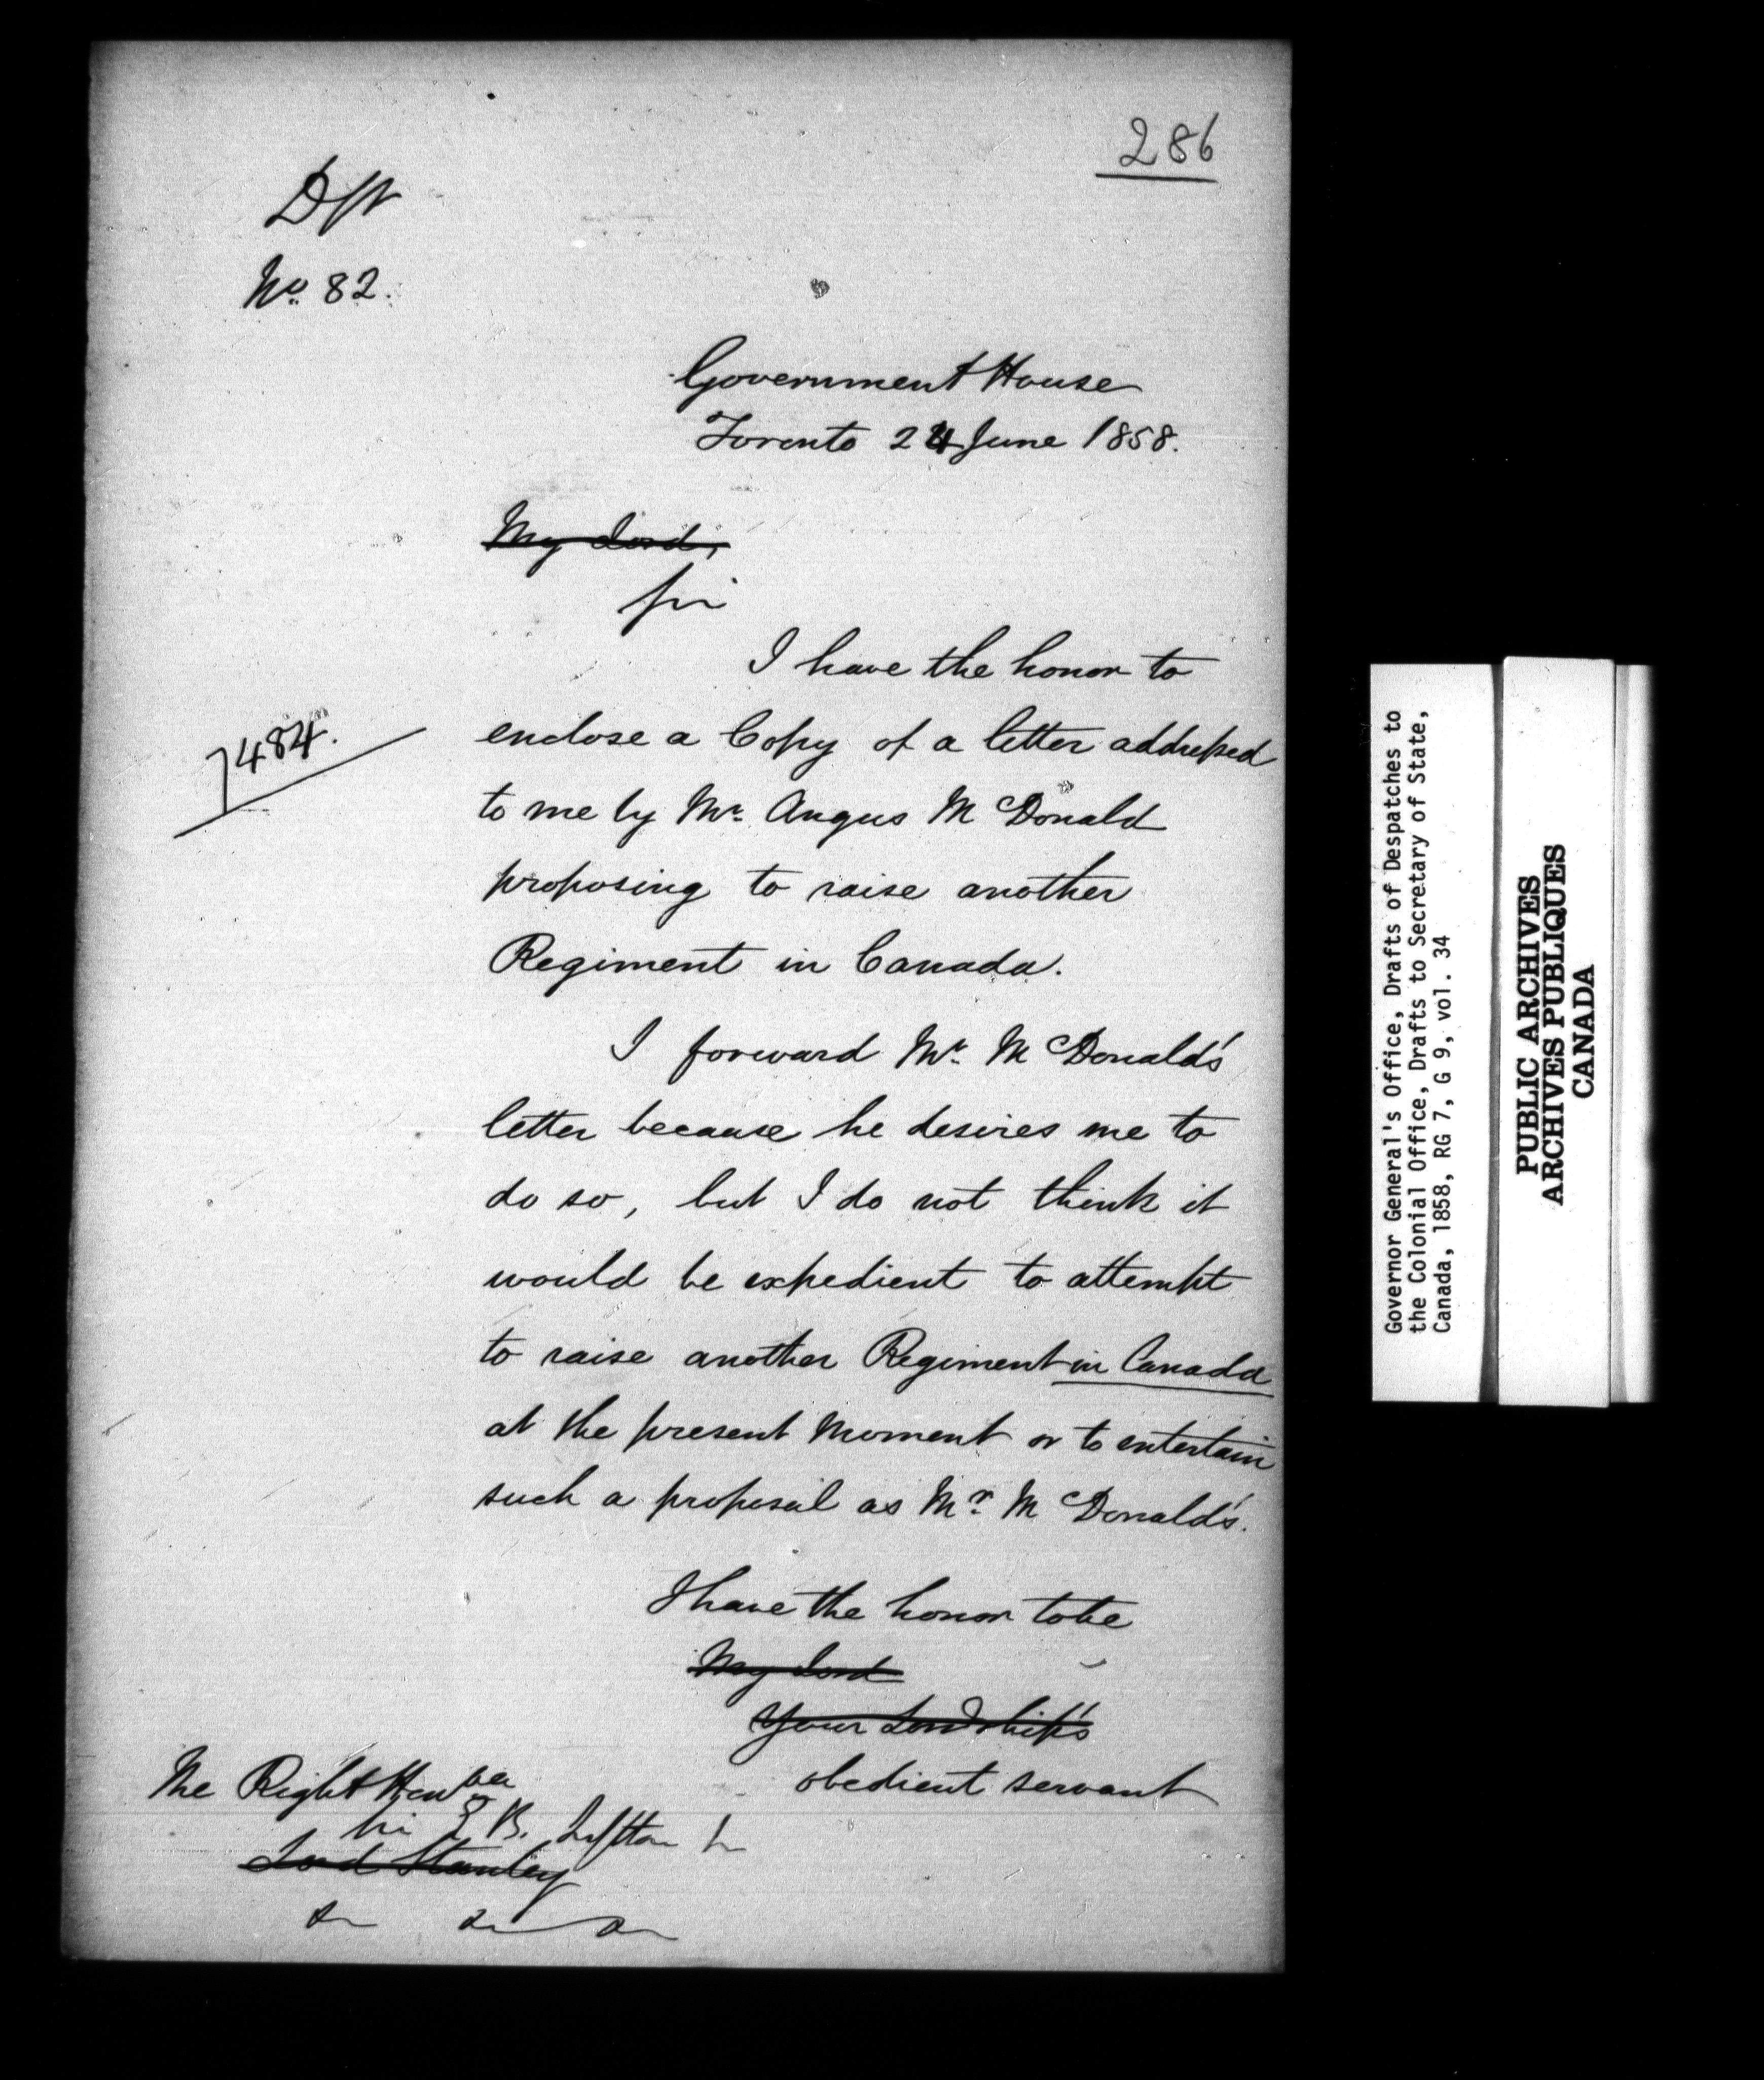 286
Dft
No. 82.
Government House
Toronto 24 June 1858.
My Lord,
Sir
I have the honor to
7484.
enclose a Copy of a letter addressed
to me by Mr. Angus McDonald
proposing to raise another
Regiment in Canada.
I forward Mr. McDonald's
letter because he desires me to
do so, but I do not think it
would be expedient to attempt
to raise another Regiment in Canada
at the present moment or to entertain
such a proposal as Mr. McDonald's.
I have the honor to be
My Lord
Your Lordship's
obedient servant
The Right Honble
Sir E B. Lytton
Lord Stanley
Governor General's Office, Drafts of Despatches to
the Colonial Office, Drafts to Secretary of State,
Canada, 1858, RG 7, G 9, vol. 34
PUBLIC ARCHIVES
ARCHIVES PUBLIQUES
CANADA